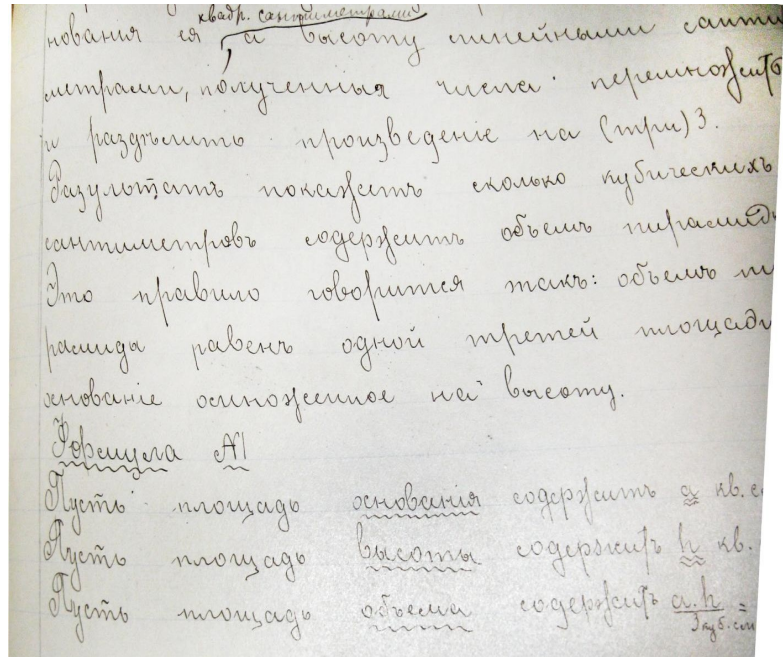 квадр. сантиметрами
нования ея а высоту линейными санти
метрами, полученныя числа перемножить
и раздѣлить произведеніе на (три) 3.
Разультатъ покажатъ сколько кубическихъ
сантиметровъ содержитъ объемъ пирамиды
Это правило говорится такъ: объемъ пи
рамиды равенъ одной третей площади
основаніе осмноженное на высоту.
Формула №1
Пусть площадь основанія содержитъ a кв. с
Пусть площадь высоты содержитъ h кв.
Пусть площадь объема содержитъ a.h =
3 куб. см